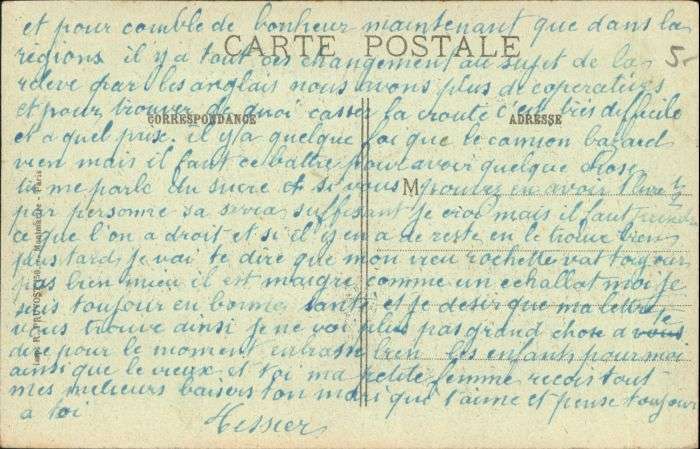 et pour comble de bonheur maintenant que dans la
région il y a tout ces changement au sujet de la
CARTE POSTALE
5-
releve par les anglais nous avons plus de coperatives
et pour trouver de quoi casser la croute c'est très difficile
CORRESPONDANCE
ADRESSE
et a quel prix. il y a quelque foi que le camion bazard
vien mais il faut ce battre pour avoir quelque chose
tu me parle du sucre et si vous pouvez en avoir 1 livre 1/2
M
par personne sa sera suffisant je croi mais il faut prendre
ce que l'on a droit et si il y en a de reste en le trouve bien
plus tard je vai te dire que mon vieu rochette vat toujour
pas bien mieu il est maigre comme un echallot moi je
suis toujour en bonne santé et je desir que ma lettre
vous trouve ainsi je ne voi plus pas grand chose a vous te
dire pour le moment enbrasse bien les enfants pour moi
ainsi que le vieux et toi ma petite femme recois tout
mes meilieurs baisers ton mari que t'aime et pense toujour
a toi
Tessier
Imp. R. PRUVOST, 159, r. Montmartre - Paris